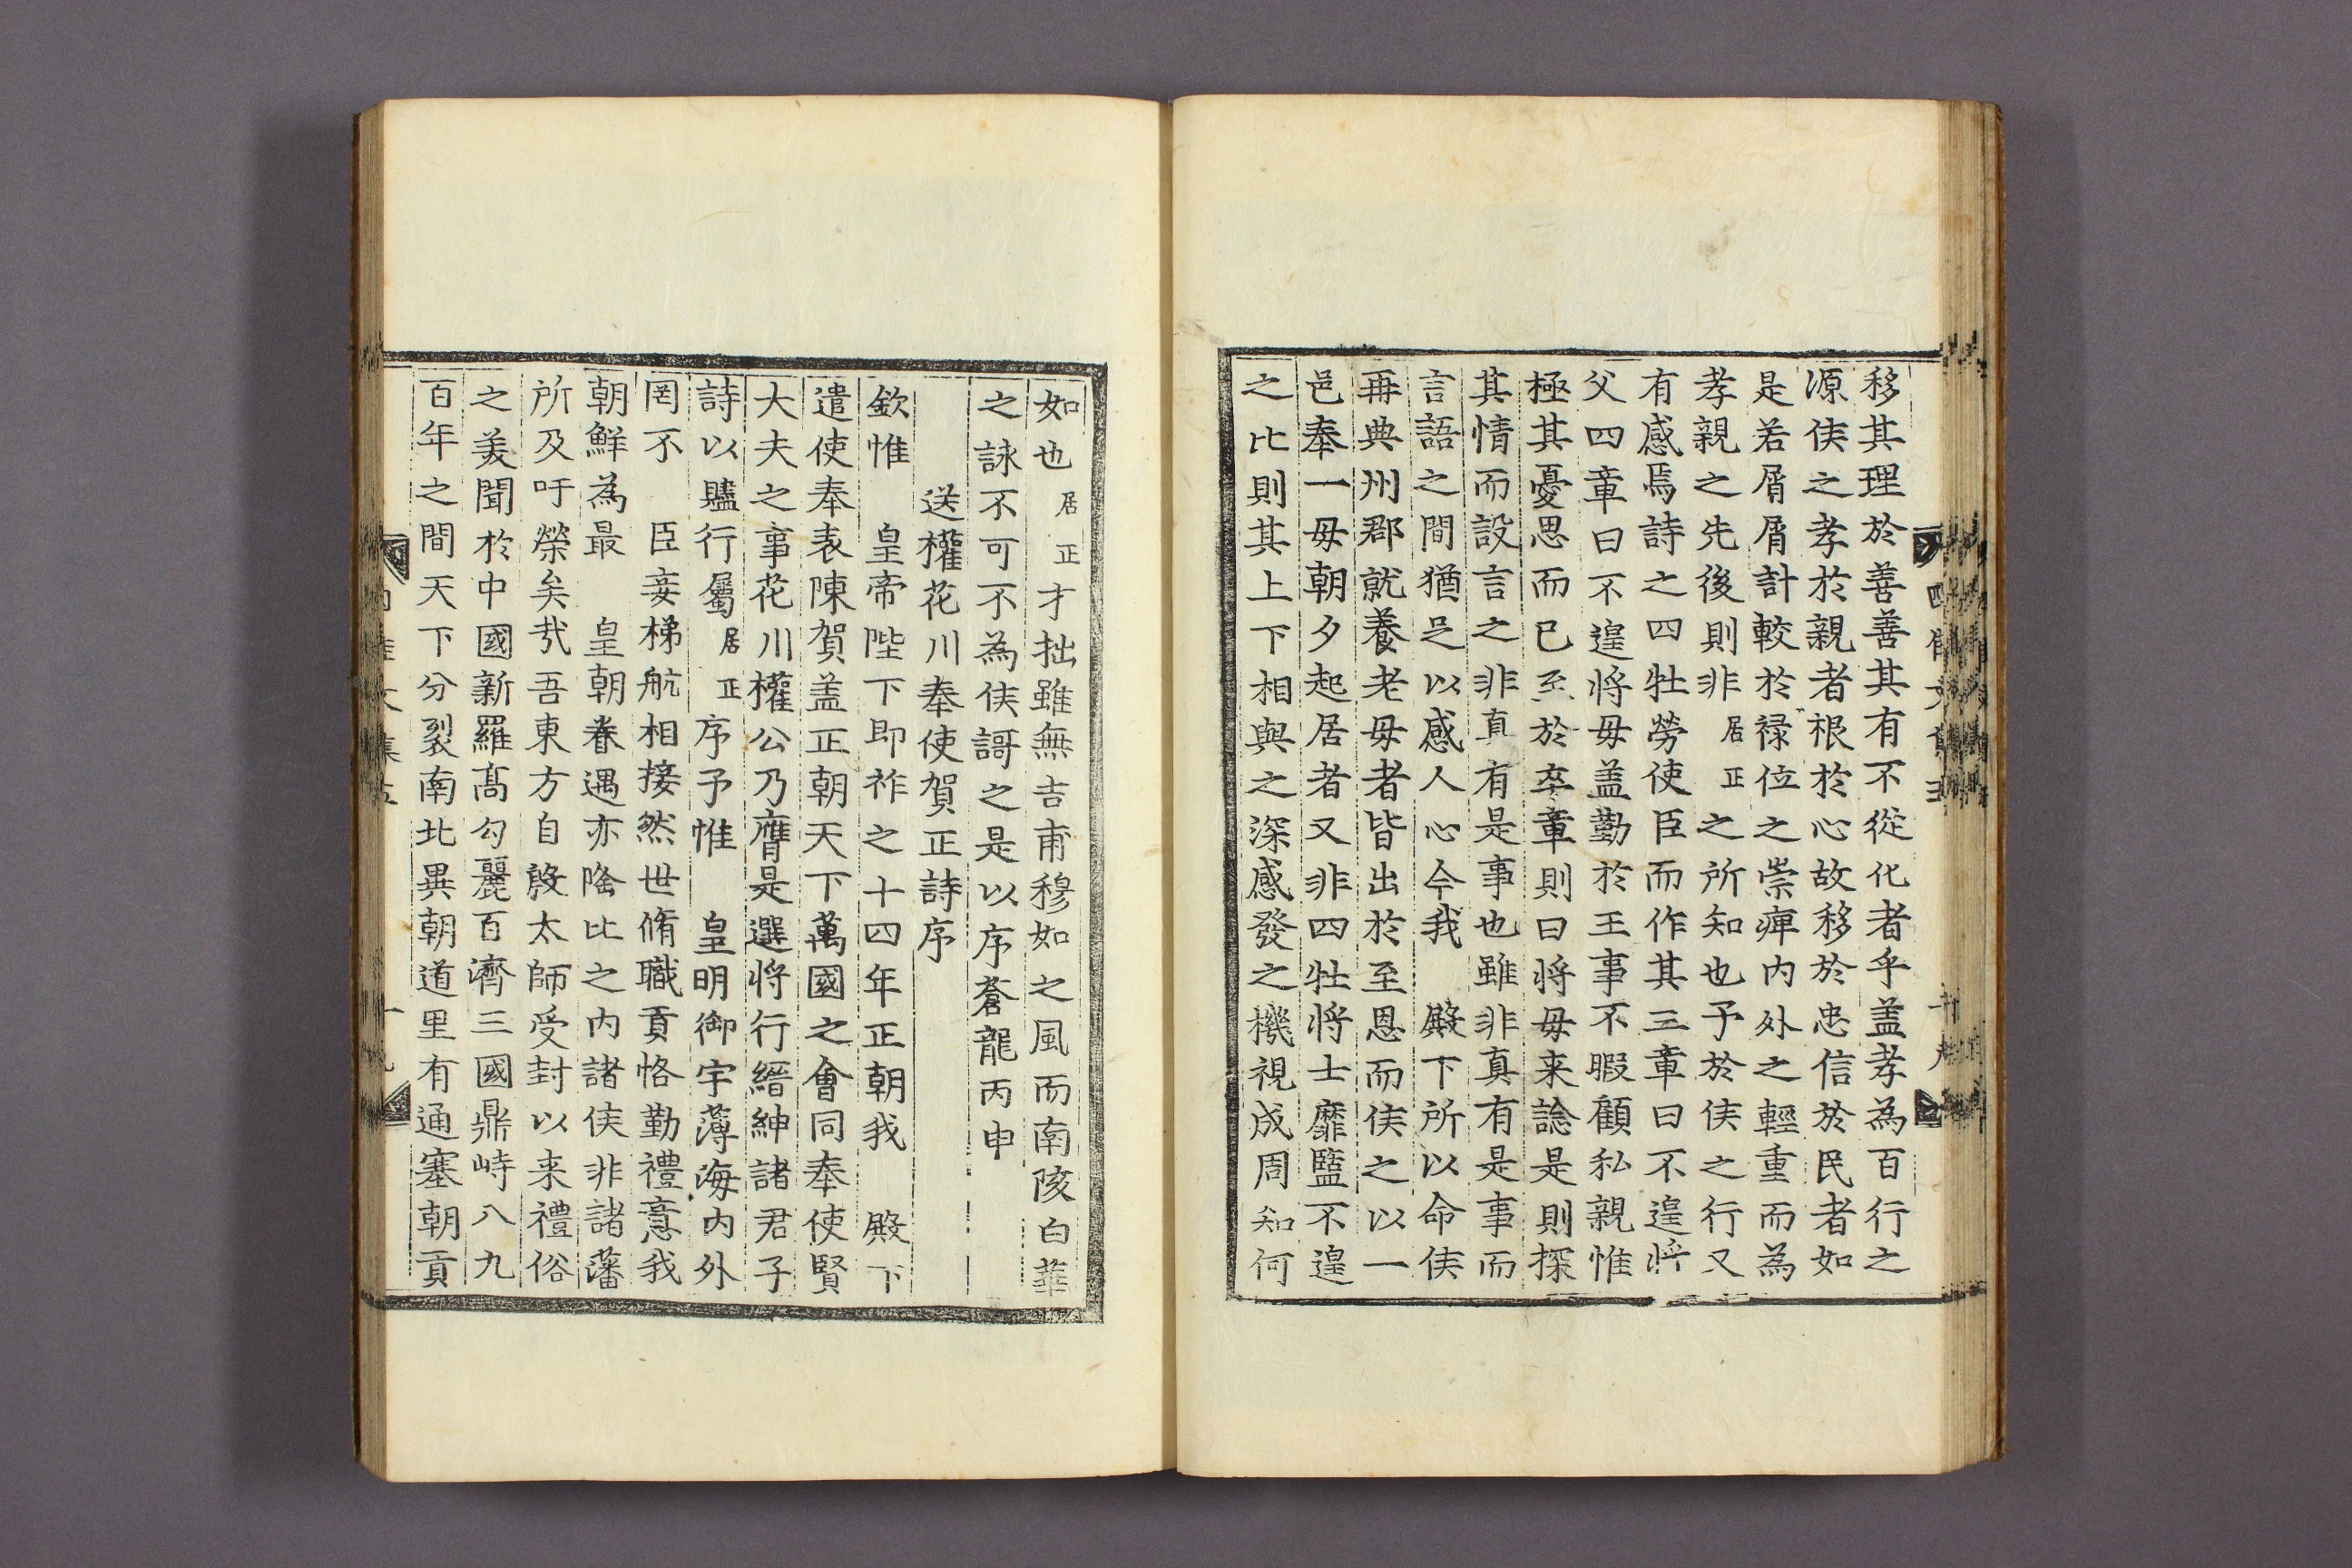 移其理於善善其有不從化者乎盖孝為百行之
源侯之孝於親者根於心故移於忠信於民者如
是若屑屑計較於禄位之崇痺内外之輕重而為
孝親之先後則非居正之所知也予於侯之行又
有感焉詩之四牡勞使臣而作其三章曰不遑將
父四章曰不遑將母盖勤於王事不暇顧私親惟
極其憂思而已至於卒章則曰将母来諗是則探
其情而設言之非真有是事也雖非真有是事而
言語之間猶足以感人心今我 殿下所以命侯
再典州郡就養老母者皆出於至恩而侯之以一
邑奉一母朝夕起居者又非四牡将士靡盬不遑
之比則其上下相與之深感發之機視成周知何
如也居正才拙雖無吉甫穆如之風而南陔白華
之詠不可不為侯謌之是以序蒼龍丙申
送權花川奉使賀正詩序
欽惟 皇帝陛下即祚之十四年正朝我 殿下
遣使奉表陳賀盖正朝天下萬國之會同奉使賢
大夫之事花川權公乃膺是選将行縉紳諸君子
詩以贐行屬居正序予惟 皇明御宇薄海内外
罔不 臣妾梯航相接然世脩職貢恪勤禮意我
朝鮮為最 皇朝眷遇亦隆比之内諸侯非諸藩
所及吁榮矣㢤吾東方自殷太師受封以来禮俗
之美聞於中國新羅髙勾麗百濟三國鼎峙八九
百年之間天下分裂南北異朝道里有通塞朝貢